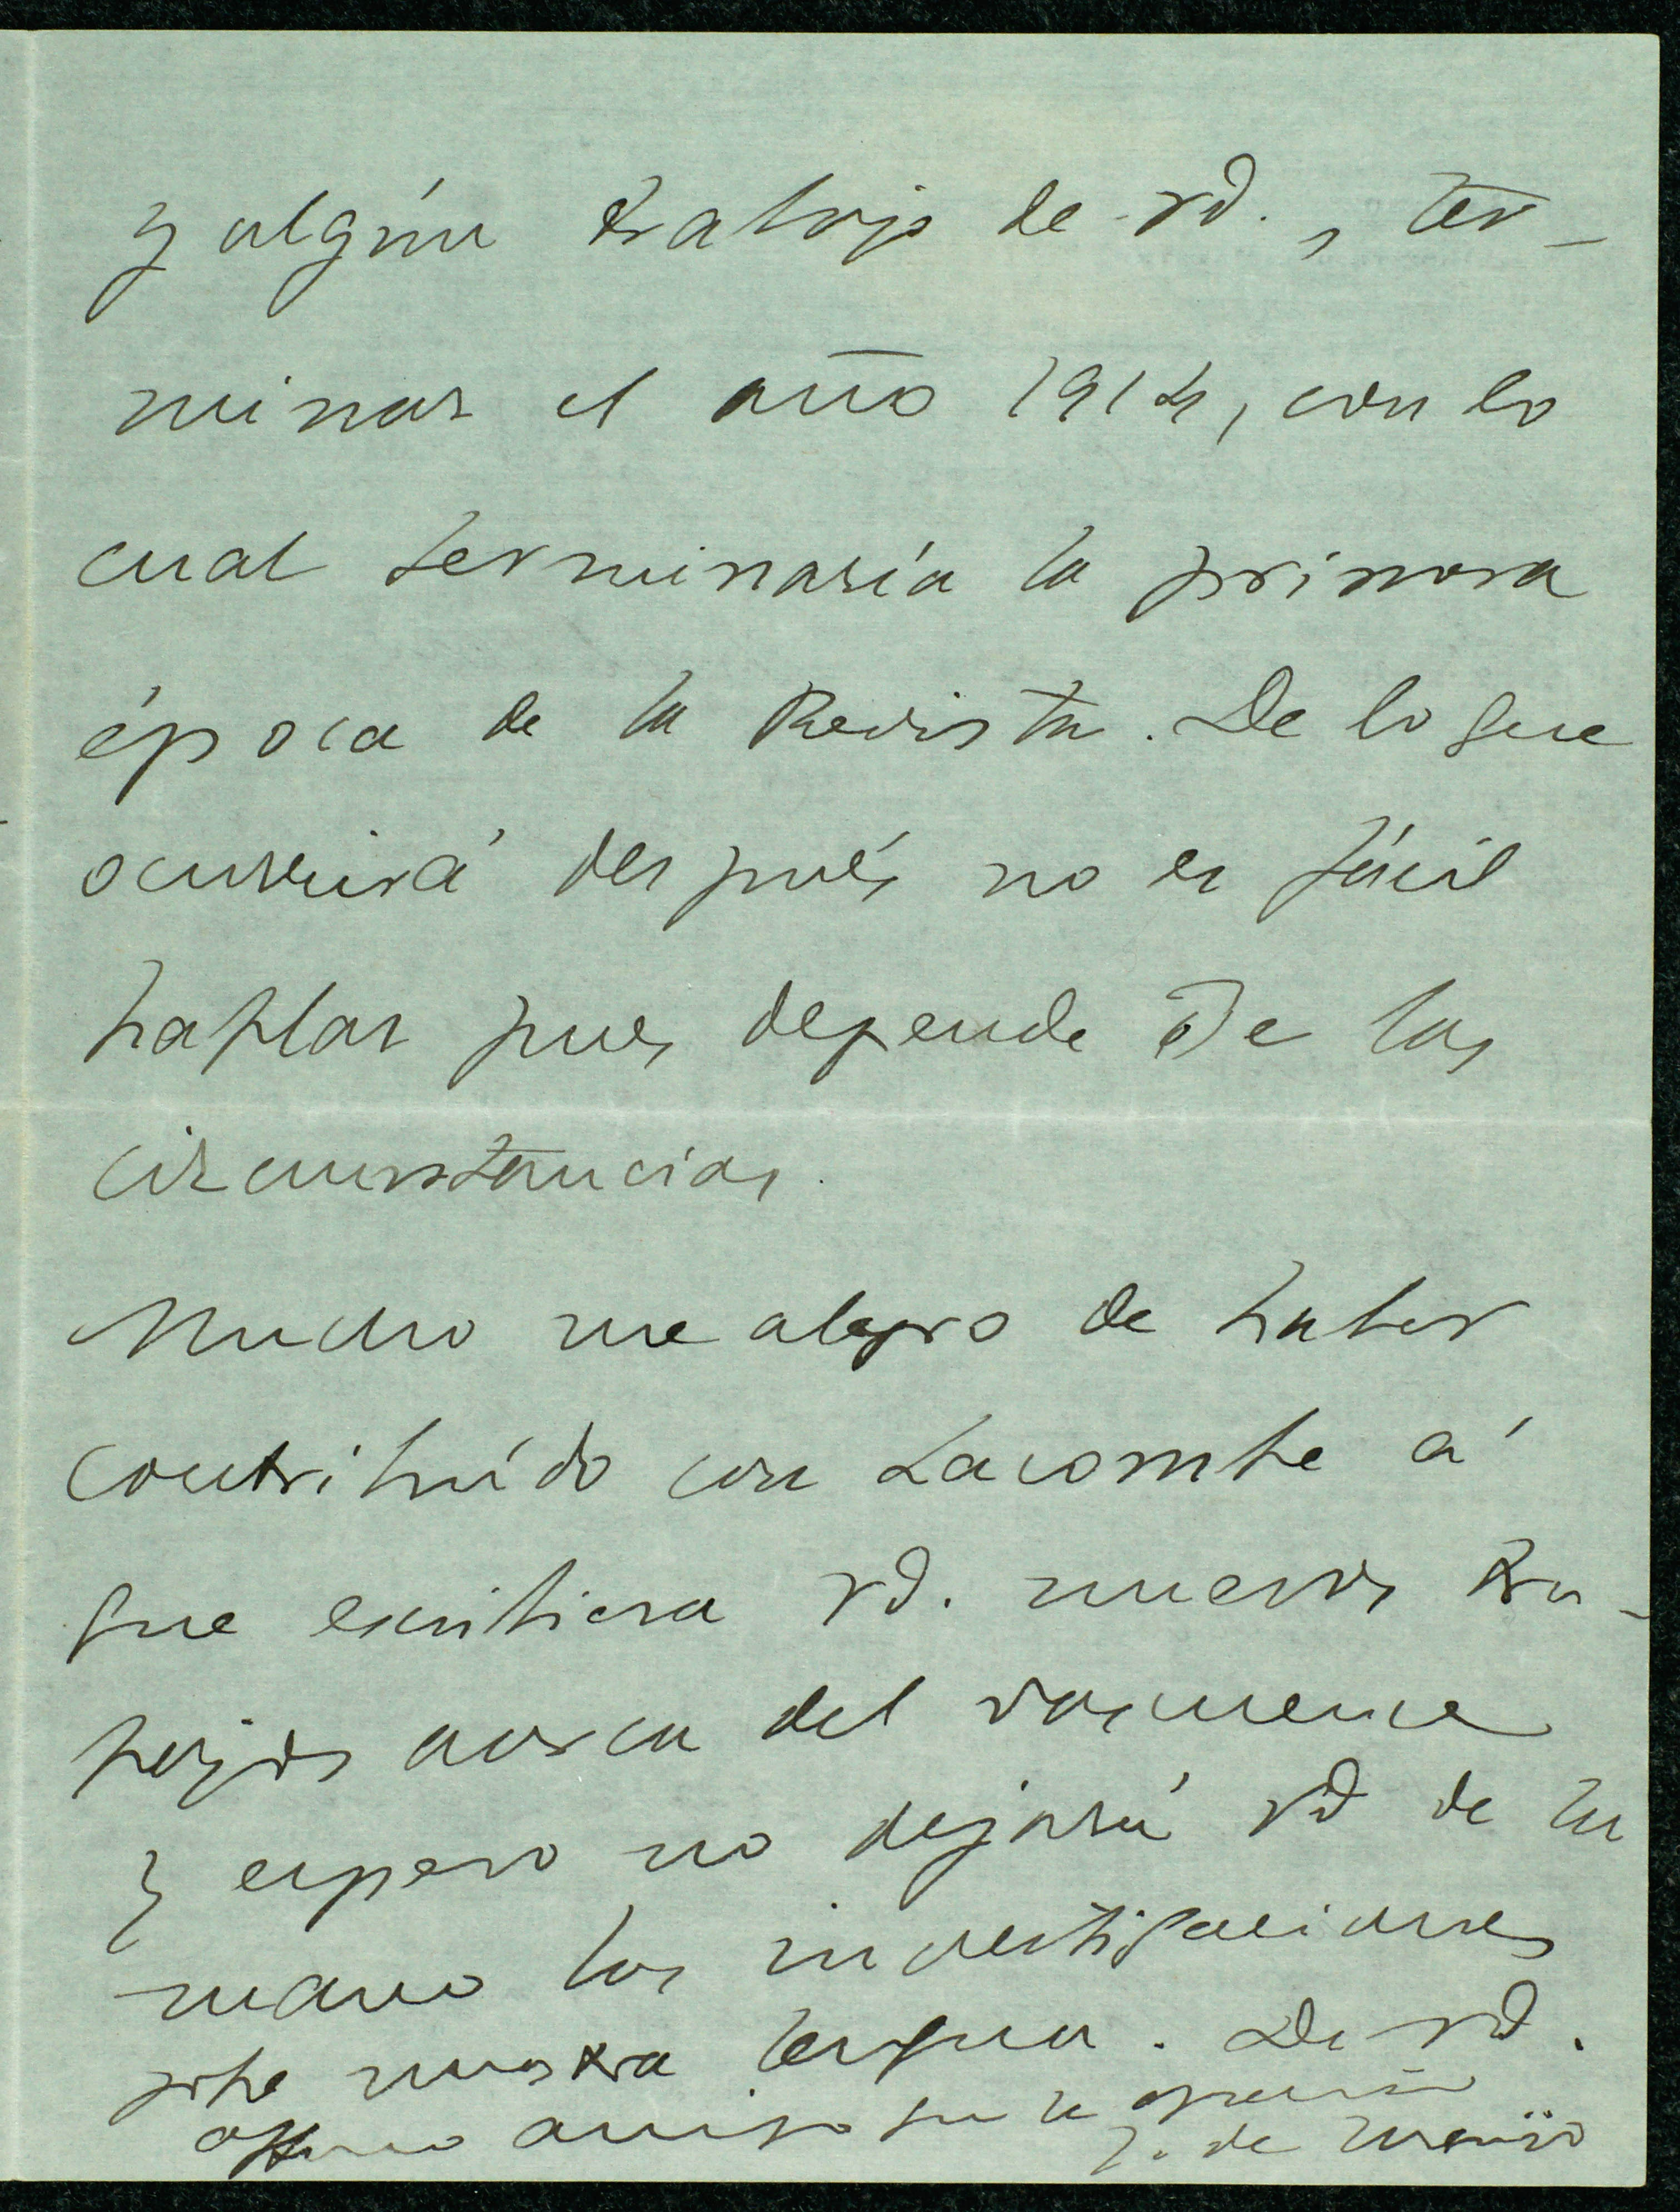 y algún trabajo de vd., ter-
minar el año 1914, con lo
cual terminaría la primera
época de la Revista. De lo que
ocurrirá después no es fácil
hablar pues depende de las
circunstancias.
Mucho me alegro de haber
contribuído con Lacombe á
que escribiera vd. nuevos tra-
bajos acerca del vascuence
y espero no dejará vd de la
mano las investigaciones
sbe nuestra lengua. De vd.
affmo amigo que le aprecia
J. de Urquijo